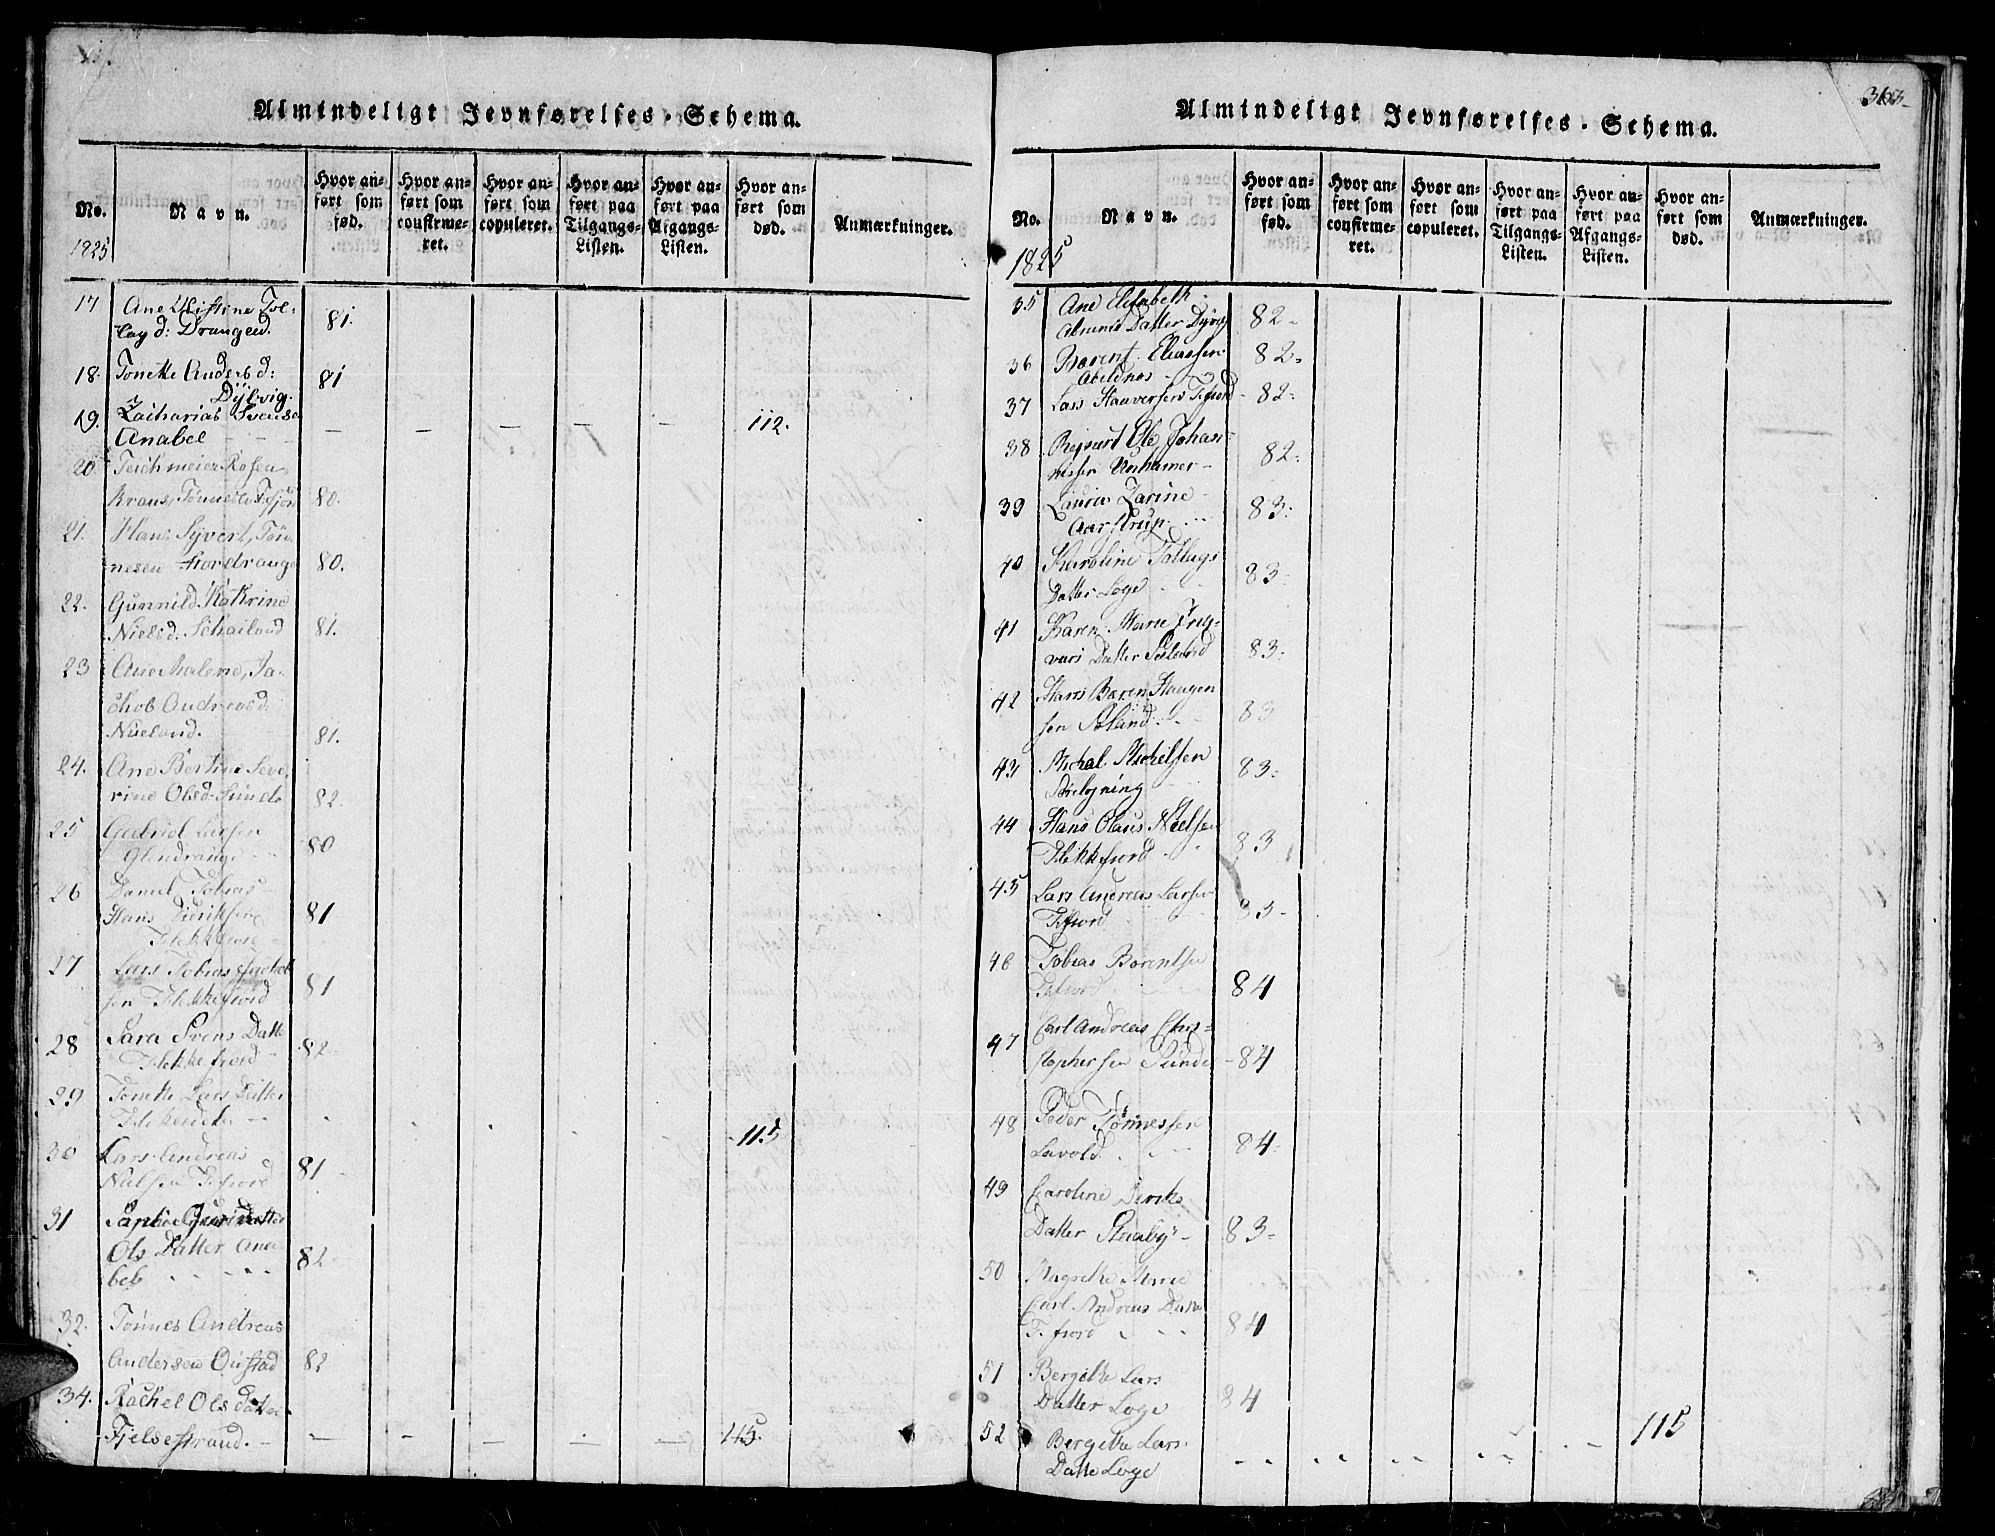 Almindeligt Jevnførelses-Schema.
No.
Navn.
Hvor an-
ført som
fød.
Hvor an-
ført som
confirme-
ret.
Hvor an-
ført som
copuleret.
Hvor an-
ført paa
Tilgangs-
Listen.
Hvor an-
ført paa
Afgangs-
Listen.
Hvor an-
ført som
død.
Anmærkninger.
1825
17 Ane Christine Tol-
lag d: Drangeid. 81.
18. Tonette Anders d:
Dybvig. 81
19. Zacharias Svense
Anabel — — — — — 112.
20. Teichmeier Rosen-
krans, Tønnes 80.
21. Hans Syvert, Tøn-
nesen Hordrange 80.
22. Gunnild Katrine
Nielsd. 81.
23 Ane Malene, Ja-
chob Andreasd:
Nueland. 81.
24. Ane Bertine Seve-
rine Olsd. Sunde 82.
25 Gabriel Larsen
Glendrange 80
26 Daniel Tobias
Hans Diriksen
Flekkefiord 81
27 Lars Tobias Jachob
sen Flekkefiord 81
28 Sara Datt
Flekkefiord 82
29 Tonette Lars Datter
115
30 Lars Andreas
Nielsen F.fiord 81
31 Sophie
Ols Datter Ana-
bel 82
32. Tønnes Andreas
Andersen Oustad 82
34. Rachel Ols datter
Fjelsestrand. — — — — — 115.
Almindeligt Jevnførelses-Schema.
363
No.
Navn.
Hvor an-
ført som
fød.
Hvor an-
ført som
confirme-
ret.
Hvor an-
ført som
copuleret.
Hvor an-
ført paa
Tilgangs-
Listen.
Hvor an-
ført paa
Afgangs-
Listen.
Hvor an-
ført som
død.
Anmærkninger.
1825
35 Ane Elisabeth
Datter 82
36 Barent Eliassen
Abelnes 82
37 Lars F.fiord 82
38 Ole Johan-
nessen 82
39 Laura Zarine
Aarstrup 83
40 Karoline Tollags
Datter Loge 83
41 Karen Marie Ing-
vars Datter 83
42 Hans Baren Haagen
sen 83
43 Michal Michelsen
83
44 Hans Olaus Nielsen
Flekkefiord 83
45 Lars Andreas Larsen
F.fiord 83
46 Tobias Barentsen
F.fiord 84
47 Carl Andreas Chri-
stophersen Sunde 84
48 Peder Tønnessen
Lavold 84
49 Caroline Diriks
Datter Steaby 83
50 Magrethe Marie
Carl Andreas Datter
F.fiord 84
51 Bergithe Lars
Datter Loge 84
52 Bergithe Lars
Datte Loge 115